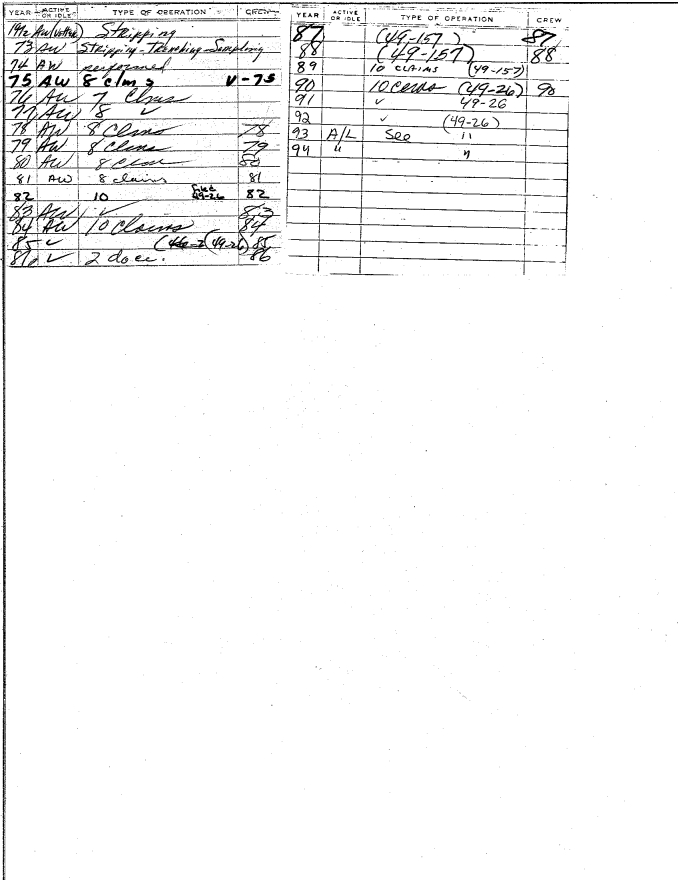 YEAR ACTIVE OR IDLE TYPE OF OPERATION CREW
1972 AW Stripping
73 AW Stripping-Trenching-Sampling
74 AW performed
75 AW 8 clms V-75
76 AW 7 Clms
77 AW 8 ✓
78 AW 8 Clms 78
79 AW 8 Clms 79
80 AW 8 Clms 80
81 AW 8 claims 81
82 10 filed 49-26 82
83 AW ✓ 83
84 AW 10 Claims 84
85 ✓ (49-26) 85
86 ✓ 2 docu. 86
YEAR ACTIVE OR IDLE TYPE OF OPERATION CREW
87 (49-157) 87
88 (49-157) 88
89 10 CLAIMS (49-157)
90 10 (49-26) 90
91 ✓ 49-26
92 ✓ (49-26)
93 A/L See "
94 " "